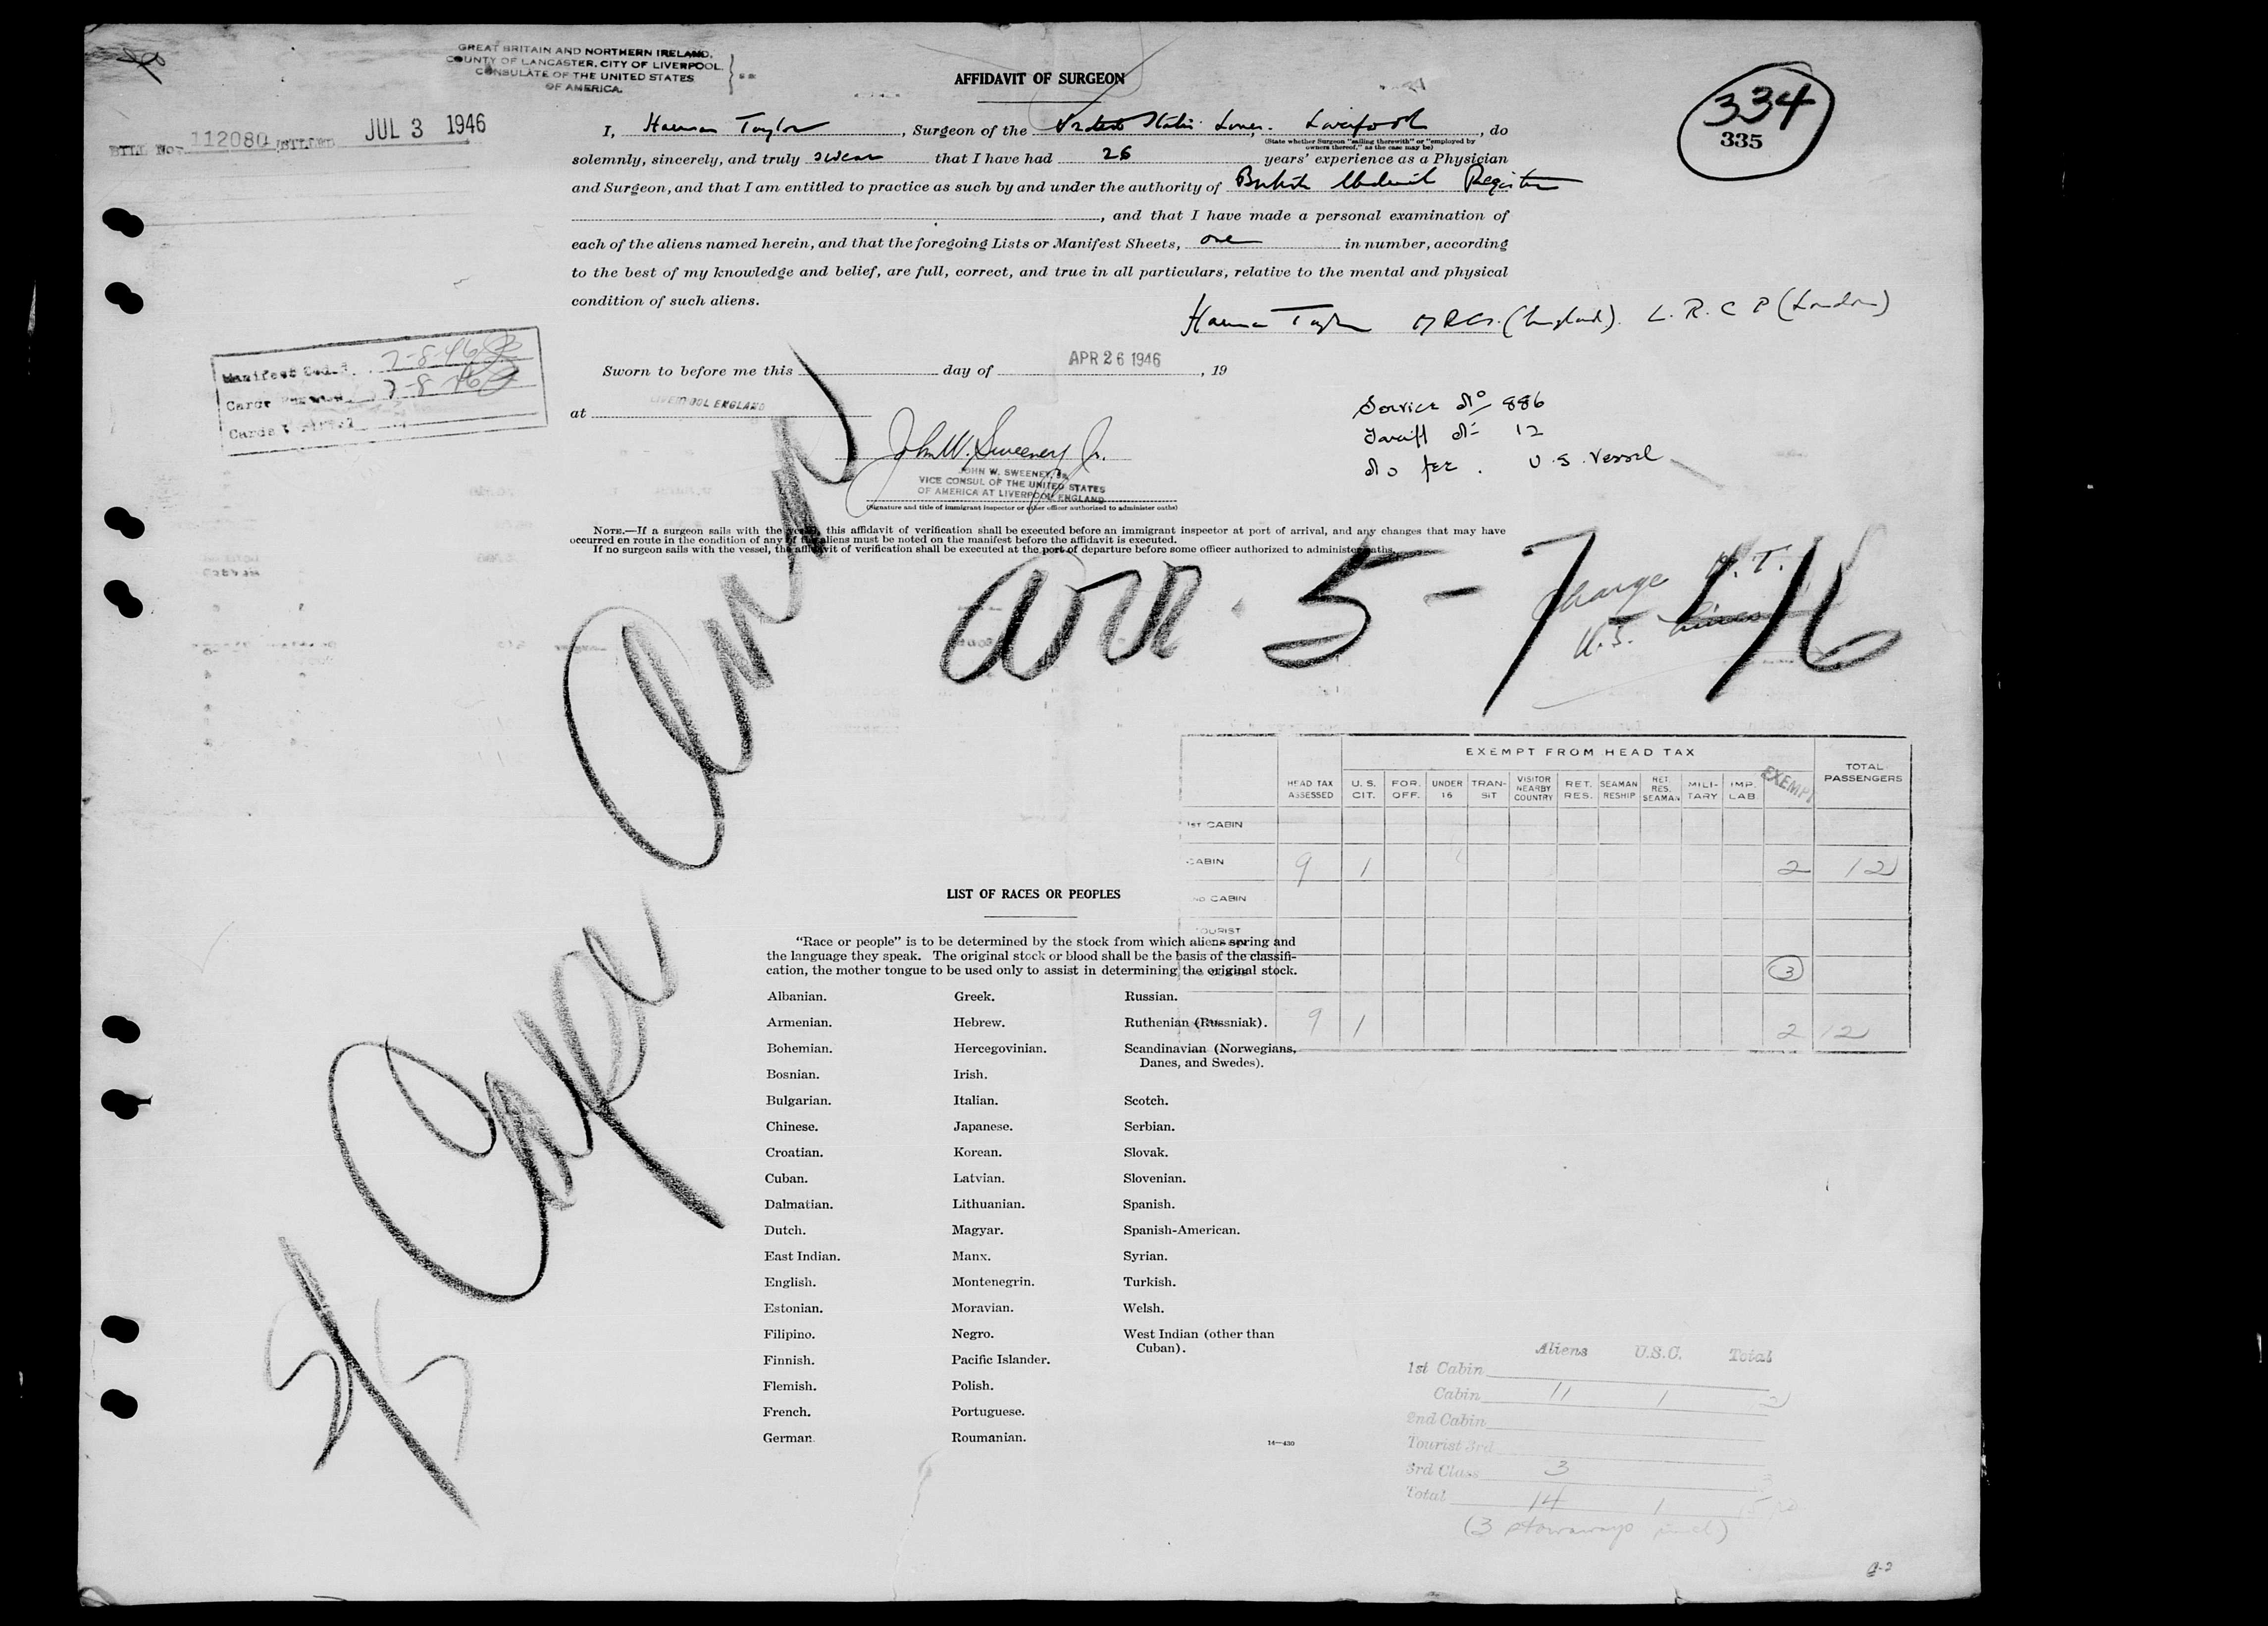 GREAT BRITAIN AND NORTHERN IRELAND,
COUNTY OF LANCASTER, CITY OF LIVERPOOL
CONSULATE OF THE UNITED STATES
OF AMERICA.
BILL No. 112080 JUL 3 1946
334
335
AFFIDAVIT OF SURGEON
I, Taylor, Surgeon of the United States Lines. Liverpool, do
(State whether Surgeon "sailing therewith" or "employed by
owners thereof," as the case may be)
solemnly, sincerely, and truly swear that I have had 26 years' experience as a Physician
and Surgeon, and that I am entitled to practice as such by and under the authority of British Medical Register
, and that I have made a personal examination of
each of the aliens named herein, and that the foregoing Lists or Manifest Sheets, one in number, according
to the best of my knowledge and belief, are full, correct, and true in all particulars, relative to the mental and physical
condition of such aliens.
Taylor MRCS. (England). L.R.C P (London)
Manifest 7-8-46
Cards 7-8-46
Cards
Sworn to before me this day of APR 26 1946, 19
at LIVERPOOL ENGLAND
John W. Sweeney Jr.
JOHN W. SWEENEY, JR.
VICE CONSUL OF THE UNITED STATES
OF AMERICA AT LIVERPOOL, ENGLAND
(Signature and title of immigrant inspector or other officer authorized to administer oaths)
Service No 886
Tariff No 12
No fee. U.S. Vessel
NOTE.—If a surgeon sails with the vessel, this affidavit of verification shall be executed before an immigrant inspector at port of arrival, and any changes that may have
occurred en route in the condition of any of the aliens must be noted on the manifest before the affidavit is executed.
If no surgeon sails with the vessel, the affidavit of verification shall be executed at the port of departure before some officer authorized to administer oaths.
arr. 5-7-46
Charge H.T.
U.S. Lines
S/S Cape Ann
EXEMPT FROM HEAD TAX
HEAD TAX ASSESSED U. S. CIT. FOR. OFF. UNDER 16 TRANSIT VISITOR NEARBY COUNTRY RET. RES. SEAMAN RESHIP RET. RES. SEAMAN MILITARY IMP. LAB. EXEMPT TOTAL PASSENGERS
1ST CABIN
CABIN 9 1 2 12
2ND CABIN
TOURIST
3
9 1 2 12
LIST OF RACES OR PEOPLES
"Race or people" is to be determined by the stock from which aliens spring and
the language they speak. The original stock or blood shall be the basis of the classifi-
cation, the mother tongue to be used only to assist in determining the original stock.
Albanian. Greek. Russian.
Armenian. Hebrew. Ruthenian (Russniak).
Bohemian. Hercegovinian. Scandinavian (Norwegians,
Danes, and Swedes).
Bosnian. Irish.
Bulgarian. Italian. Scotch.
Chinese. Japanese. Serbian.
Croatian. Korean. Slovak.
Cuban. Latvian. Slovenian.
Dalmatian. Lithuanian. Spanish.
Dutch. Magyar. Spanish-American.
East Indian. Manx. Syrian.
English. Montenegrin. Turkish.
Estonian. Moravian. Welsh.
Filipino. Negro. West Indian (other than
Cuban).
Finnish. Pacific Islander.
Flemish. Polish.
French. Portuguese.
German. Roumanian.
14—430
Aliens U.S.C. Total
1st Cabin
Cabin 11 1
2nd Cabin
Tourist 3rd
3rd Class 3 3
Total 14 1 15
(3 stowaways incl)